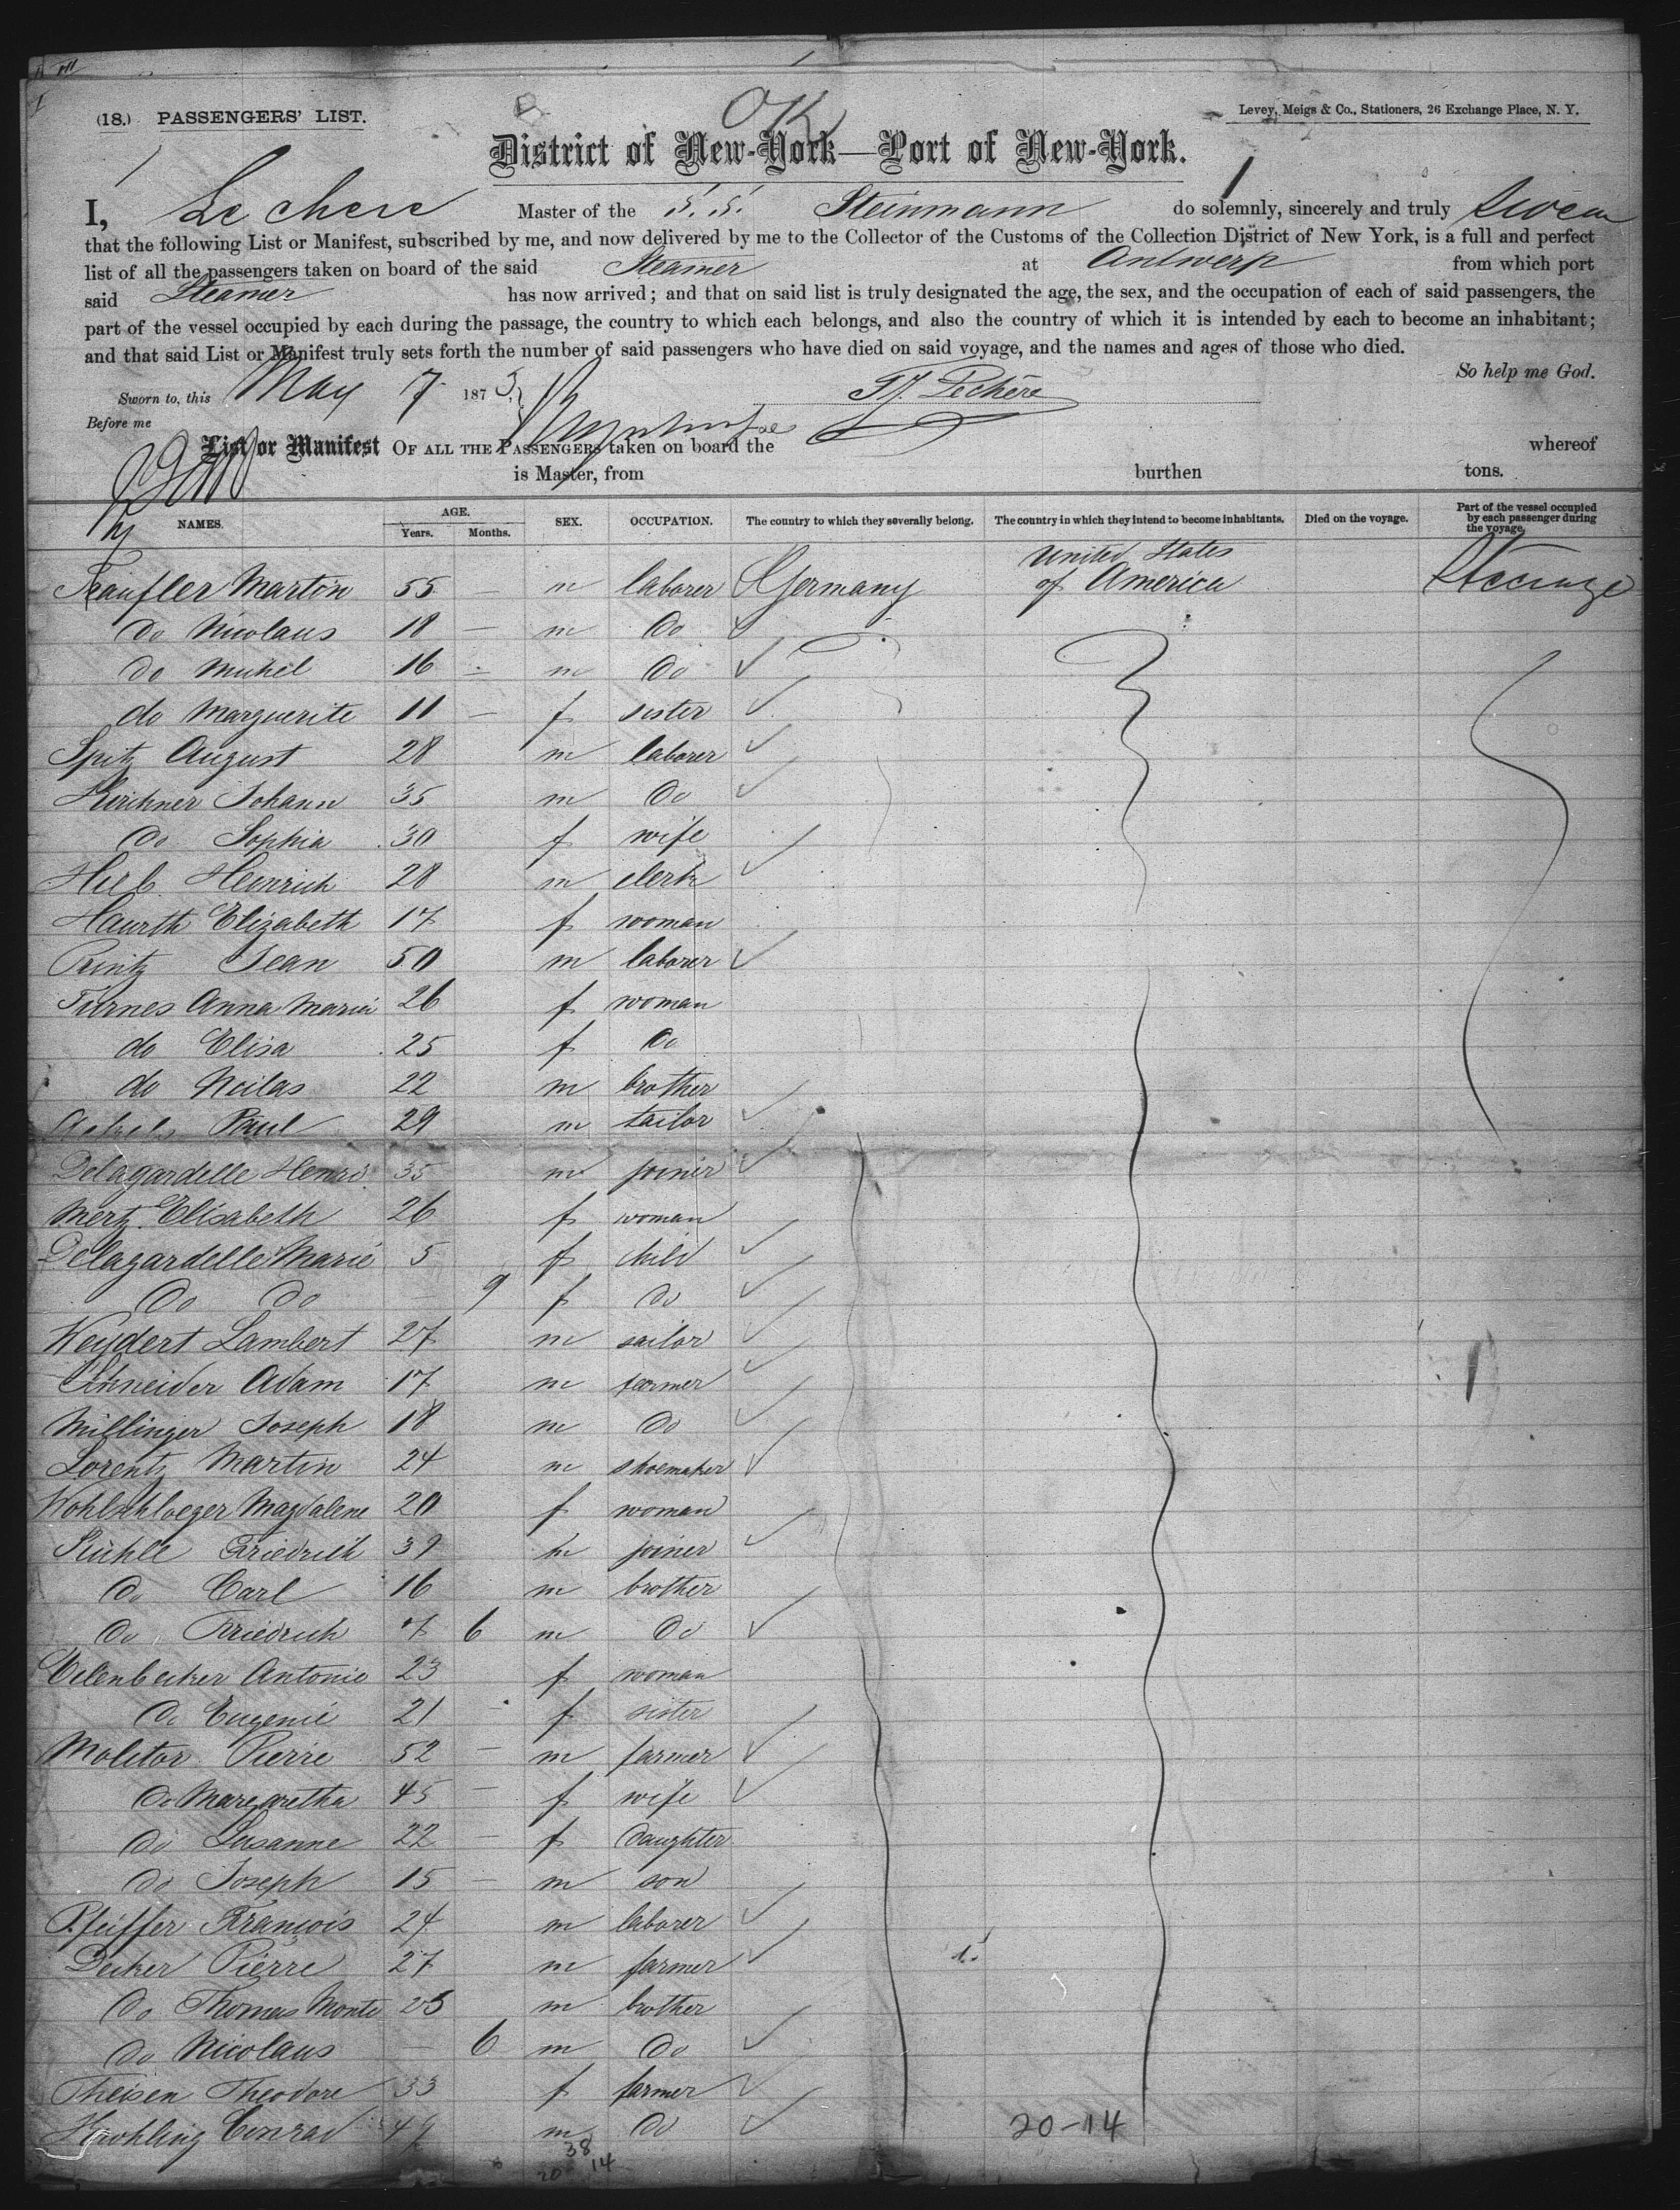 (18.) PASSENGERS' LIST.
OK
Levey, Meigs & Co., Stationers, 26 Exchange Place, N. Y.
District of New-York—Port of New-York.
I, Le chere Master of the S.S. Steinmann do solemnly, sincerely and truly swear
that the following List or Manifest, subscribed by me, and now delivered by me to the Collector of the Customs of the Collection District of New York, is a full and perfect
list of all the passengers taken on board of the said Steamer at Antwerp from which port
said Steamer has now arrived; and that on said list is truly designated the age, the sex, and the occupation of each of said passengers, the
part of the vessel occupied by each during the passage, the country to which each belongs, and also the country of which it is intended by each to become an inhabitant;
and that said List or Manifest truly sets forth the number of said passengers who have died on said voyage, and the names and ages of those who died.
So help me God.
Sworn to, this May 7 1873
Before me
List or Manifest OF ALL THE PASSENGERS taken on board the whereof
is Master, from burthen tons.
NAMES. AGE. Years. Months. SEX. OCCUPATION. The country to which they severally belong. The country in which they intend to become inhabitants. Died on the voyage. Part of the vessel occupied by each passenger during the voyage.
Martin 55 — m laborer Germany United States of America Steerage
do Nicolaus 18 — m do
do Michel 16 — m do
do Marguerite 11 — f sister
Spitz August 28 m laborer
Kirchner Johann 35 m do
do Sophia 30 f wife
Heinrich 28 m clerk
Haurth Elizabeth 17 f woman
Printz Jean 50 m laborer
Turnes Anna Maria 26 f woman
do Elisa 25 f do
do 22 m brother
Paul 29 m tailor
Delagardelle Henri 35 m joiner
Mertz Elisabeth 26 f woman
Delagardelle Marie 5 f child
do do — 9 f do
Weydert Lambert 27 m sailor
Schneider Adam 17 m farmer
Millinger Joseph 18 m do
Lorentz Martin 24 m shoemaker
Wohlschloeger Magdalene 20 f woman
Stühle Friedrich 39 m joiner
do Carl 16 m brother
do Friedrich 7 6 m do
Eilenbecker Antonie 23 f woman
do Eugenie 21 — f sister
Molitor Pierre 52 — m farmer
do Margaretha 45 — f wife
do Susanne 22 — f daughter
do Joseph 15 — m son
Pfeiffer François 24 m laborer
Decker Pierre 27 m farmer
do Thomas 25 m brother
do Nicolaus — 6 m do
Theisen Theodore 33 f farmer
Conrad m do
20-14
38
20 14